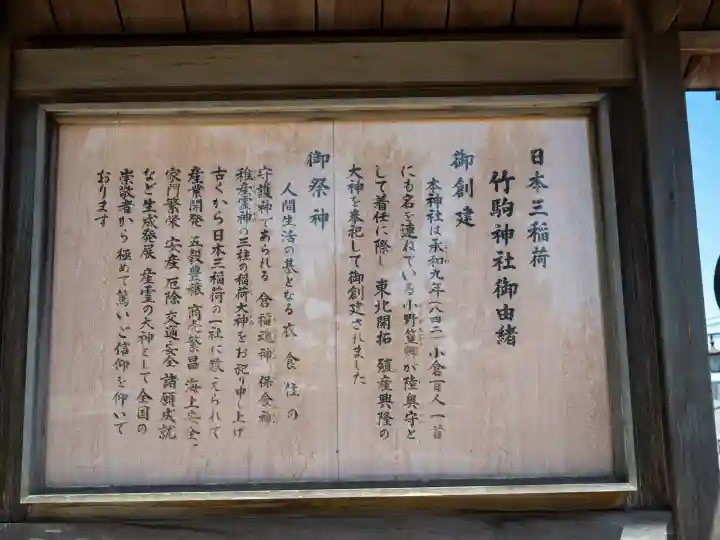 日本三稲荷
竹駒神社御由緒
御創建
本神社は承和九年(八四二)小倉百人一首
にも名を連ねている小野篁卿が陸奥守と
して着任に際し 東北開拓 殖産興隆の
大神を奉祀して御創建されました
御祭神
人間生活の基となる 衣 食 住 の
守護神であられる 倉稲魂神 保食神
稚産霊神の三柱の稲荷大神をお祀り申し上げ
古くから日本三稲荷の一社に数えられて
産業開発 五穀豊穣 商売繁昌 海上安全
家門繁栄 安産 厄除 交通安全 諸願成就
など生成発展 産霊の大神として全国の
崇敬者から極めて篤いご信仰を仰いて
おります